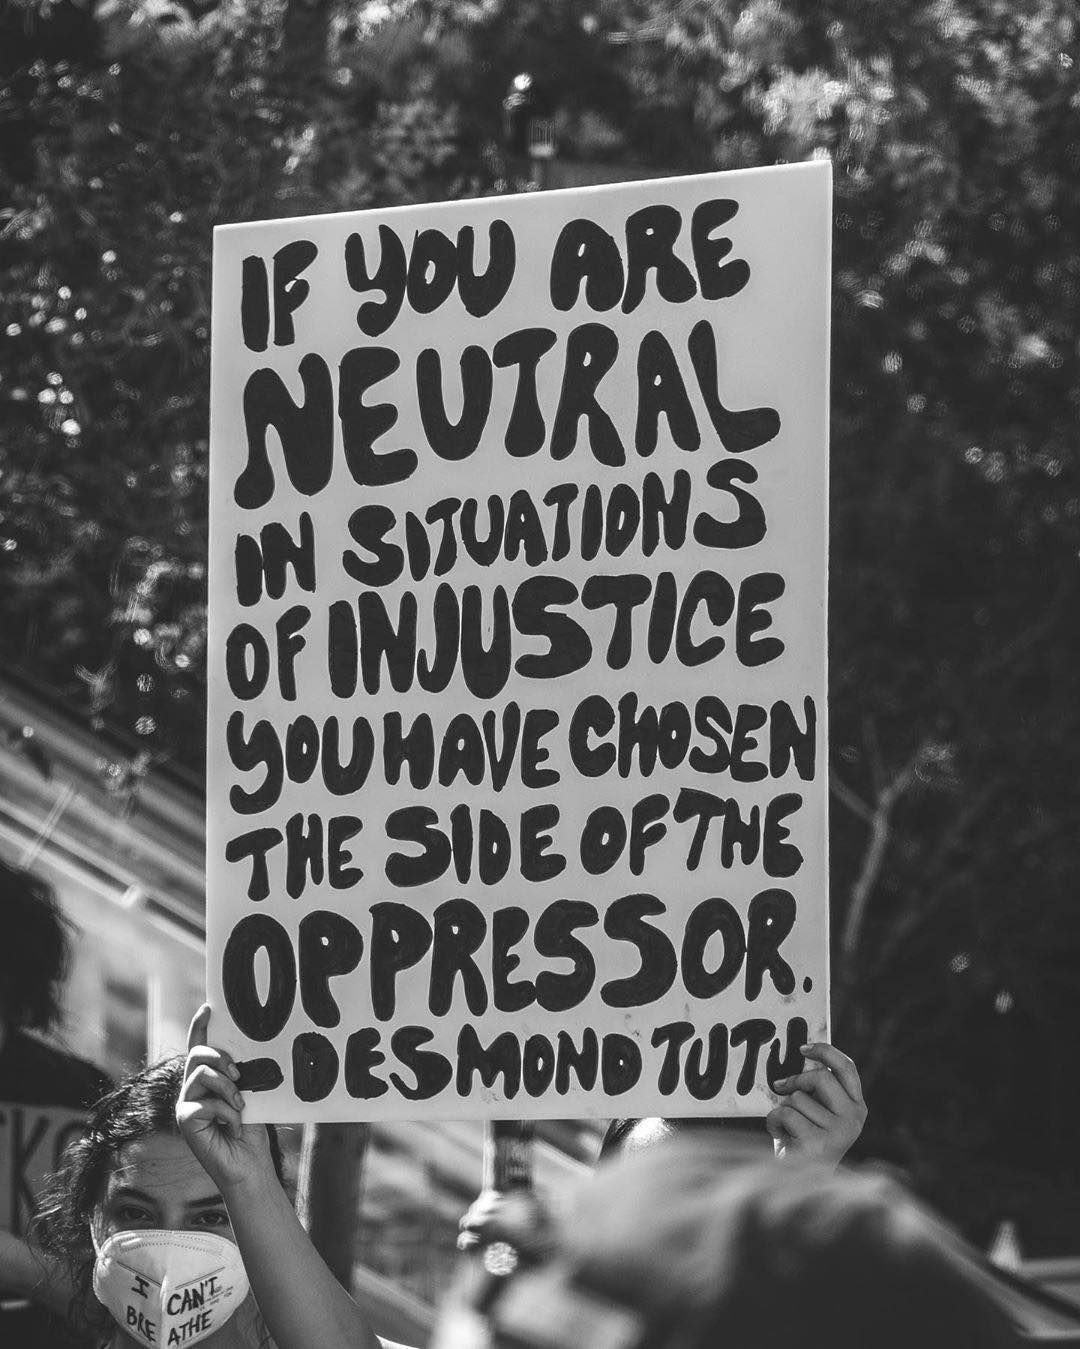 IF YOU ARE
NEUTRAL
IN SITUATIONS
OF INJUSTICE
YOU HAVE CHOSEN
THE SIDE OF THE
OPPRESSOR.
-DESMOND TUTU
I CAN'T
BREATHE